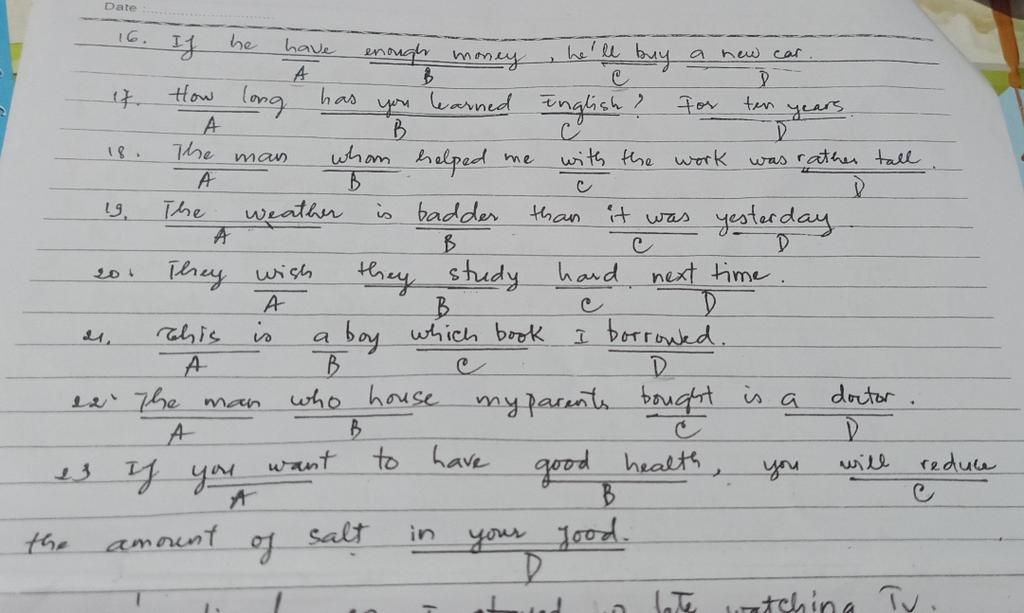 Date :
16. If he have enough money, he'll buy a new car.
A B C D
17. How long has you learned English? For ten years
A B C D
18. The man whom helped me with the work was rather tall.
A B C D
19. The weather is badder than it was yesterday
A B C D
20. They wish they study hard next time.
A B C D
21. This is a boy which book I borrowed.
A B C D
22. The man who house my parents bought is a doctor.
A B C D
23 If you want to have good health, you will reduce
A B C
the amount of salt in your food.
D
late watching TV.